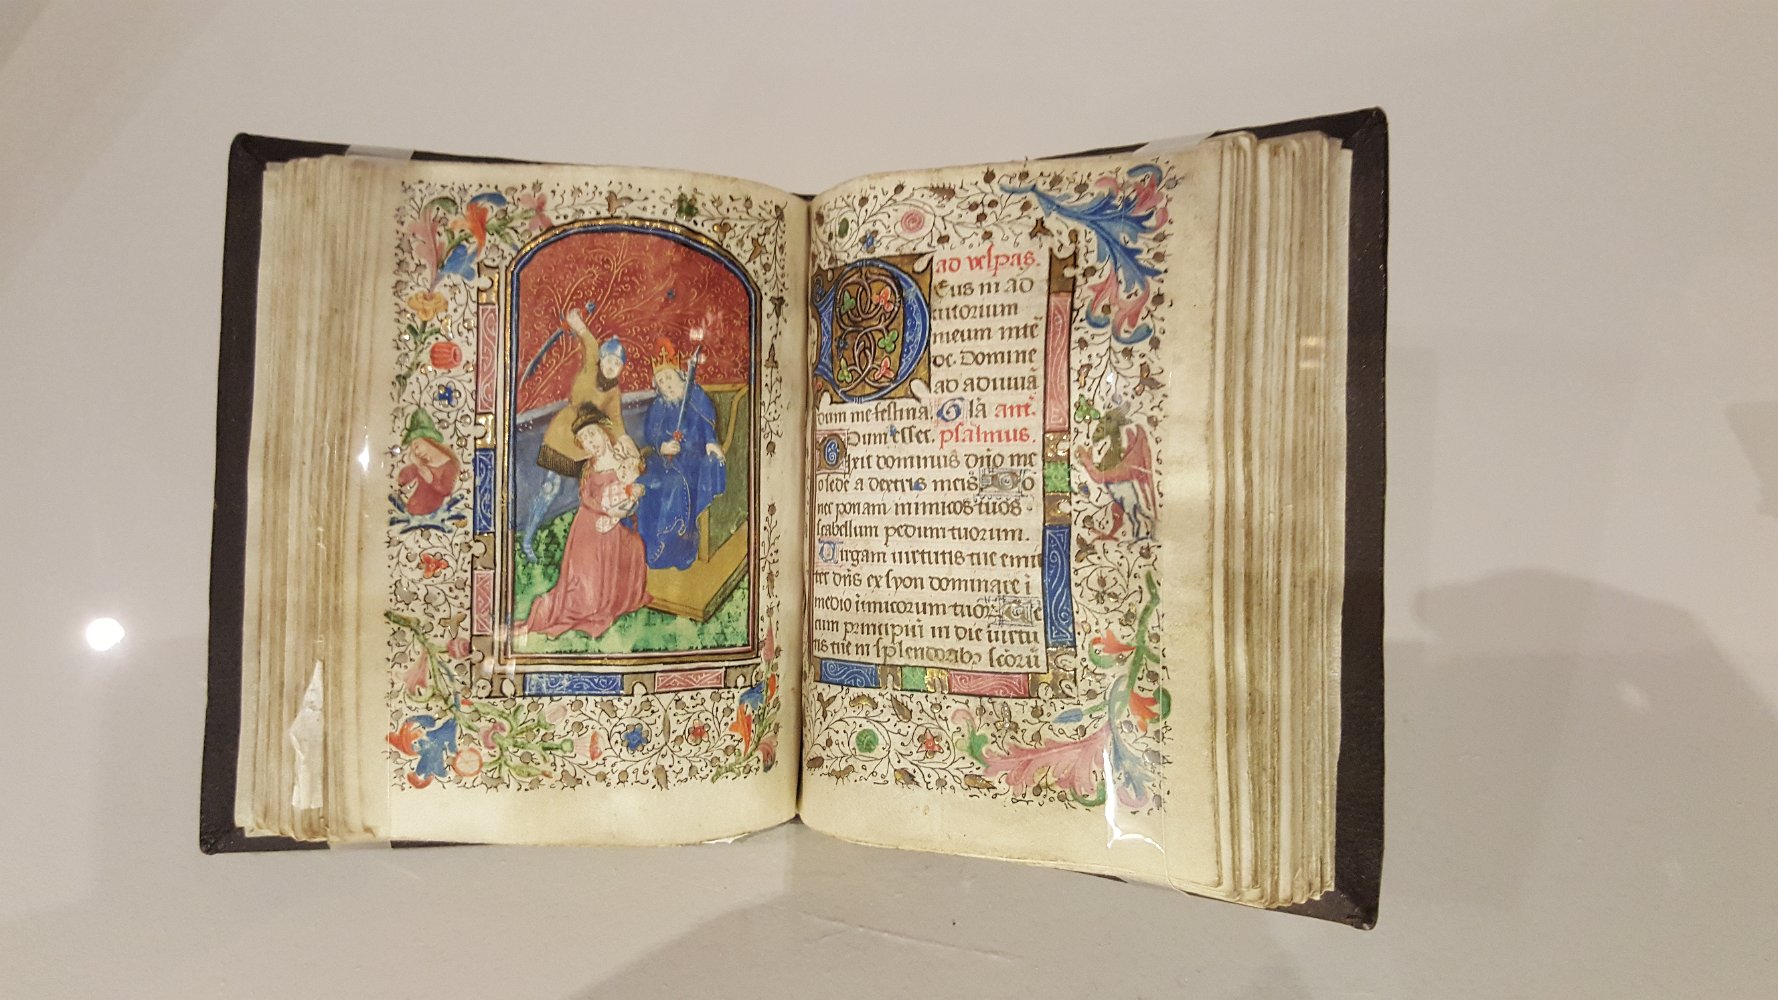 ad vespas.
Deus in ad
iutorium
meum inte
de. Domine
ad adiuuā
dum me festina. Glā ant.
Dum esset. psalmus.
Dixit dominus dn̄o me
o sede a dextris meis Do
nec ponam inimicos tuos
scabellum pedum tuorum.
Virgam uirtutis tue emit
tet dn̄s ex syon dominare ī
medio īimicorum tuor̄ Te
cum principiū in die uirtu
tis tue in splendoribꝫ scōrū